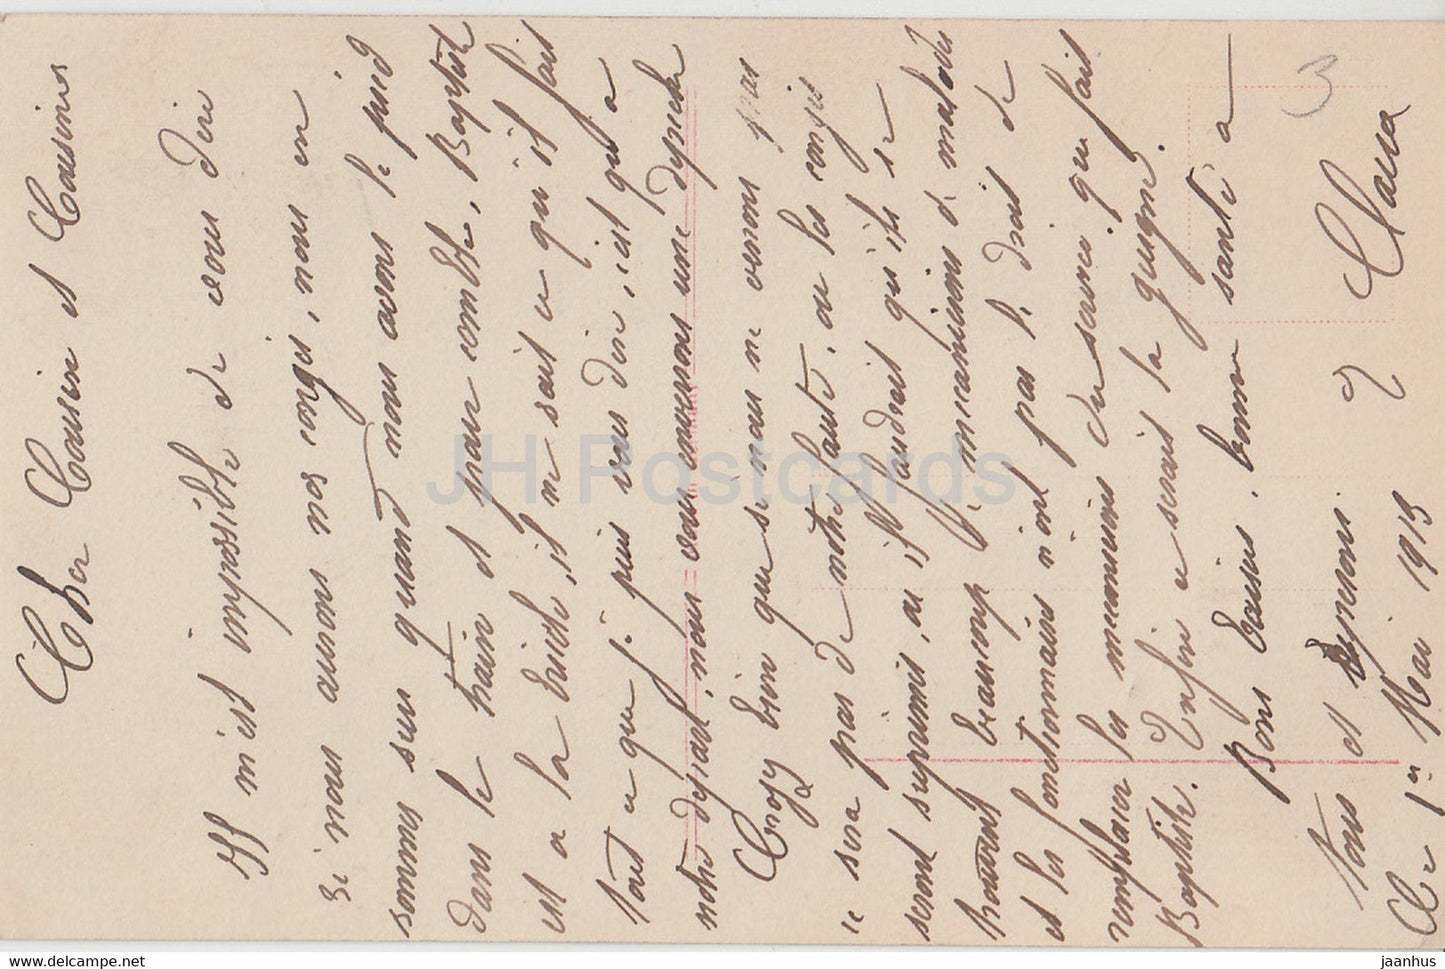 Cher Cousin et Cousines
Il m'est impossible de vous dire
si nous aurons nos congés, nous en
sommes sur quand nous avons le pied
dans le train et pour comble, Baptiste
est à la bride, il ne sait ce qu'il fait
tout ce que je puis vous dire, c'est qu'à
notre départ, nous vous enverrons une dépêche
Croyez bien que si nous ne venons pas
ce sera pas de notre faute, ou les congés
seront suprimés, ou il faudrait qu'ils se
trouvent beaucoup de mécaniciens de malades
et les fonctionnaires n'ont pas le droit de
remplacer les mécaniciens du service que fait
Baptiste. Enfin ce serait la guigne.
Bons baisers, bonne santé à
tous et
Clara
Ce 1er Mai 1913
3
JH Postcards
jaanhus © www.delcampe.net